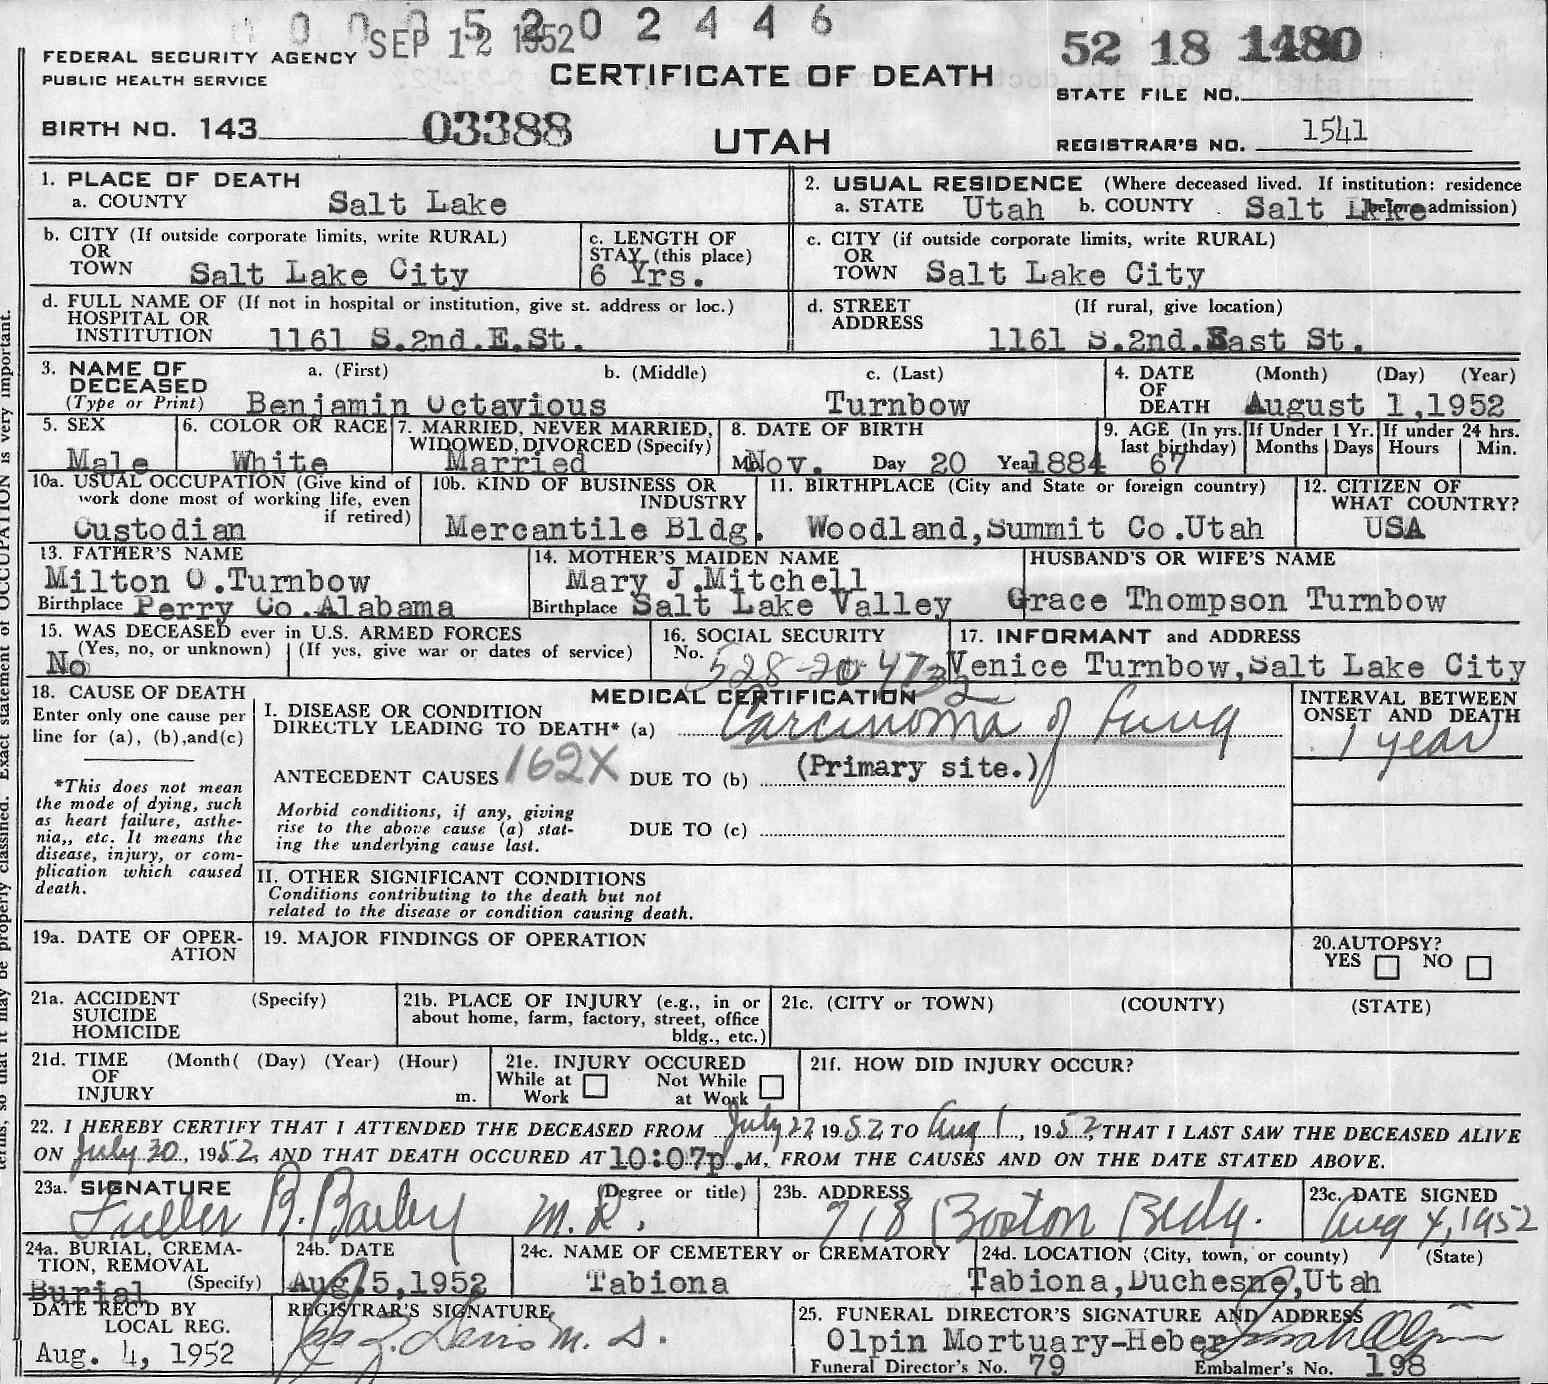 0 0 0 5 2 0 2 4 4 6
SEP 12 1952
52 18 1480
FEDERAL SECURITY AGENCY
PUBLIC HEALTH SERVICE
CERTIFICATE OF DEATH
STATE FILE NO.
BIRTH NO. 143 03388
UTAH
REGISTRAR'S NO. 1541
1. PLACE OF DEATH
a. COUNTY Salt Lake
2. USUAL RESIDENCE (Where deceased lived. If institution: residence before admission)
a. STATE Utah b. COUNTY Salt Lake
b. CITY (If outside corporate limits, write RURAL)
OR
TOWN Salt Lake City
c. LENGTH OF
STAY (this place)
6 Yrs.
c. CITY (if outside corporate limits, write RURAL)
OR
TOWN Salt Lake City
d. FULL NAME OF (If not in hospital or institution, give st. address or loc.)
HOSPITAL OR
INSTITUTION 1161 S.2nd.E.St.
d. STREET (If rural, give location)
ADDRESS
1161 S.2nd.East St.
3. NAME OF
DECEASED
(Type or Print)
a. (First) b. (Middle) c. (Last)
Benjamin Octavious Turnbow
4. DATE (Month) (Day) (Year)
OF
DEATH August 1,1952
5. SEX
Male
6. COLOR OR RACE
White
7. MARRIED, NEVER MARRIED,
WIDOWED, DIVORCED (Specify)
Married
8. DATE OF BIRTH
Mo Nov. Day 20 Year 1884
9. AGE (In yrs.
last birthday)
67
If Under 1 Yr.
Months Days
If under 24 hrs.
Hours Min.
10a. USUAL OCCUPATION (Give kind of
work done most of working life, even
if retired)
Custodian
10b. KIND OF BUSINESS OR
INDUSTRY
Mercantile Bldg.
11. BIRTHPLACE (City and State or foreign country)
Woodland,Summit Co.Utah
12. CITIZEN OF
WHAT COUNTRY?
USA
13. FATHER'S NAME
Milton O.Turnbow
Birthplace Perry Co.Alabama
14. MOTHER'S MAIDEN NAME
Mary J.Mitchell
Birthplace Salt Lake Valley
HUSBAND'S OR WIFE'S NAME
Grace Thompson Turnbow
15. WAS DECEASED ever in U.S. ARMED FORCES
(Yes, no, or unknown) (If yes, give war or dates of service)
No
16. SOCIAL SECURITY
No. 528-20-4732
17. INFORMANT and ADDRESS
Venice Turnbow,Salt Lake City
18. CAUSE OF DEATH
Enter only one cause per
line for (a), (b),and(c)
*This does not mean
the mode of dying, such
as heart failure, asthe-
nia,, etc. It means the
disease, injury, or com-
plication which caused
death.
MEDICAL CERTIFICATION
I. DISEASE OR CONDITION
DIRECTLY LEADING TO DEATH* (a) Carcinoma of Lung
ANTECEDENT CAUSES 162X DUE TO (b) (Primary site.)
Morbid conditions, if any, giving
rise to the above cause (a) stat-
ing the underlying cause last.
DUE TO (c)
INTERVAL BETWEEN
ONSET AND DEATH
1 year
II. OTHER SIGNIFICANT CONDITIONS
Conditions contributing to the death but not
related to the disease or condition causing death.
19a. DATE OF OPER-
ATION
19. MAJOR FINDINGS OF OPERATION
20. AUTOPSY?
YES NO
21a. ACCIDENT (Specify)
SUICIDE
HOMICIDE
21b. PLACE OF INJURY (e.g., in or
about home, farm, factory, street, office
bldg., etc.)
21c. (CITY or TOWN) (COUNTY) (STATE)
21d. TIME (Month( (Day) (Year) (Hour)
OF
INJURY m.
21e. INJURY OCCURED
While at Work Not While at Work
21f. HOW DID INJURY OCCUR?
22. I HEREBY CERTIFY THAT I ATTENDED THE DECEASED FROM July 22, 1952, TO Aug 1, 1952, THAT I LAST SAW THE DECEASED ALIVE
ON July 30, 1952, AND THAT DEATH OCCURED AT 10:07p.M, FROM THE CAUSES AND ON THE DATE STATED ABOVE.
23a. SIGNATURE (Degree or title)
Fuller B. Bailey M.D.
23b. ADDRESS
718 Boston Bldg.
23c. DATE SIGNED
Aug 4, 1952
24a. BURIAL, CREMA-
TION, REMOVAL
(Specify)
Burial
24b. DATE
Aug.5,1952
24c. NAME OF CEMETERY or CREMATORY
Tabiona
24d. LOCATION (City, town, or county) (State)
Tabiona,Duchesne,Utah
DATE REC'D BY
LOCAL REG.
Aug. 4, 1952
REGISTRAR'S SIGNATURE
M. D.
25. FUNERAL DIRECTOR'S SIGNATURE AND ADDRESS
Olpin Mortuary-Heber
Funeral Director's No. 79 Embalmer's No. 198
terms, so that it may be properly classified. Exact statement of OCCUPATION is very important.